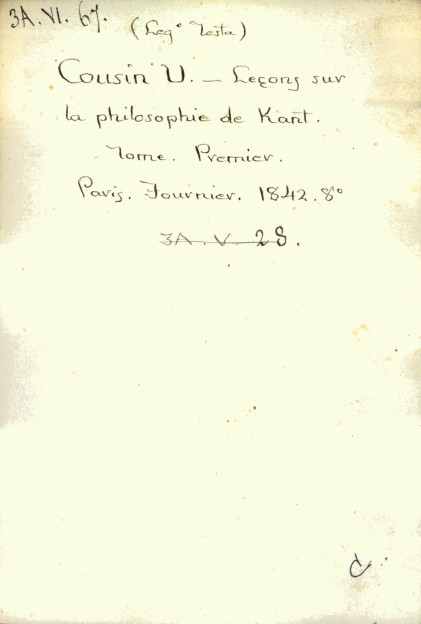 3A.VI.67.
(Leg° Testa)
Cousin V. — Leçons sur
la philosophie de Kant.
Tome. Premier.
Paris. Fournier. 1842. 8°
3A.V.28.
C